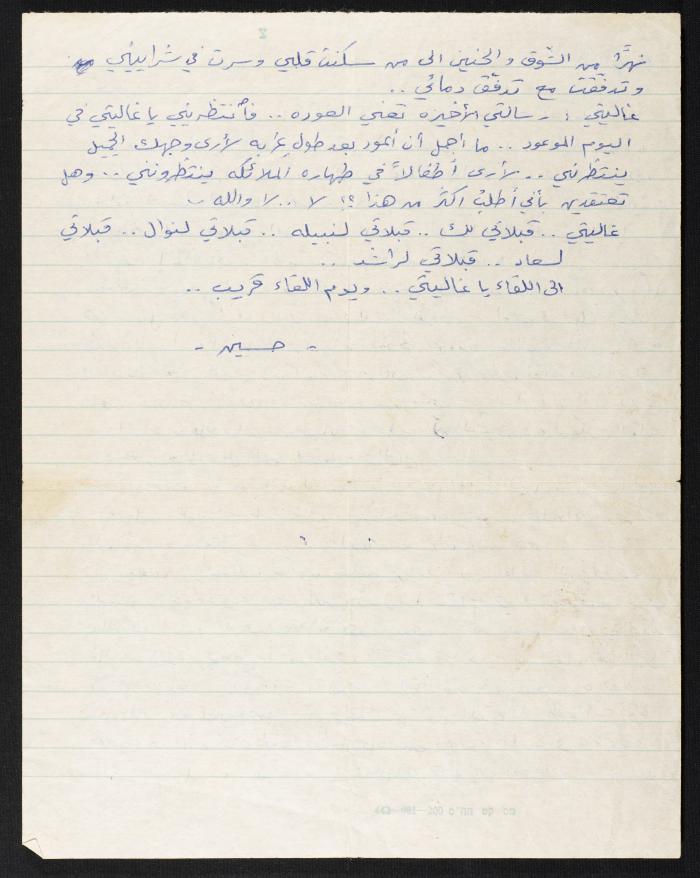 نهرًا من الشوق والحنين الى من سكنت قلبي وسرت في شراييني
وتدفقت مع تدفق دمائي ..
غاليتي : رسالتي الأخيره تعني العوده .. فأنتظريني يا غاليتي في
اليوم الموعود .. ما أجمل أن أعود بعد طول غرابه لأرى وجهك الجميل
ينتظرني .. لأرى أطفالاً في طهارة الملائكه ينتظرونني .. وهل
تعتقدين بأني أطلب اكثر من هذا ؟؟ لا .. لا والله
غاليتي .. قبلاتي لك .. قبلاتي لنبيله .. قبلاتي لنوال .. قبلاتي
لسعاد .. قبلاتي لراشد ..
الى اللقاء يا غاليتي .. ويوم اللقاء قريب ..
- حسين -